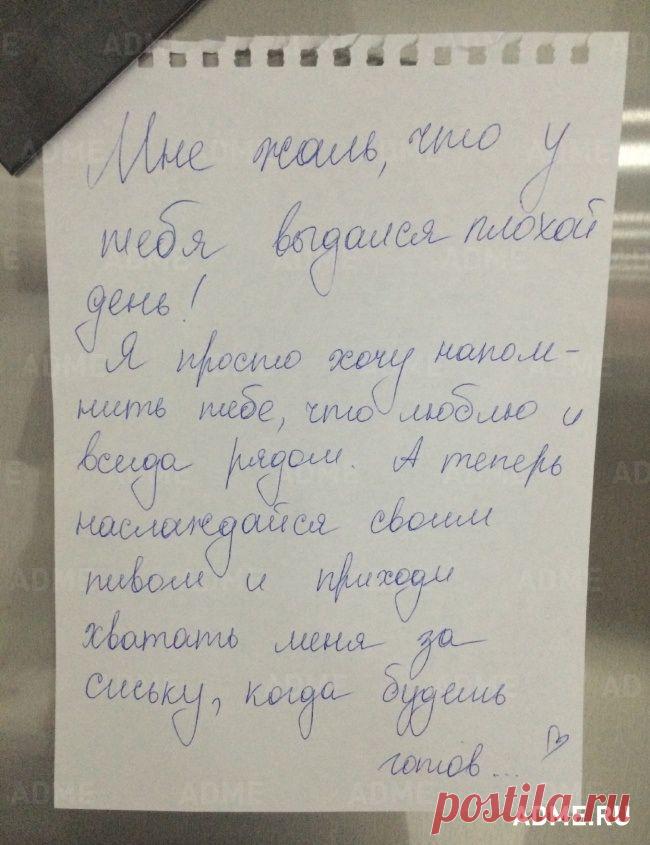 Мне жаль, что у
тебя выдался плохой
день!
Я просто хочу напом-
нить тебе, что люблю и
всегда рядом. А теперь
наслаждайся своим
пивом и приходи
хватать меня за
сиську, когда будешь
готов...
postila.ru
ADME.RU